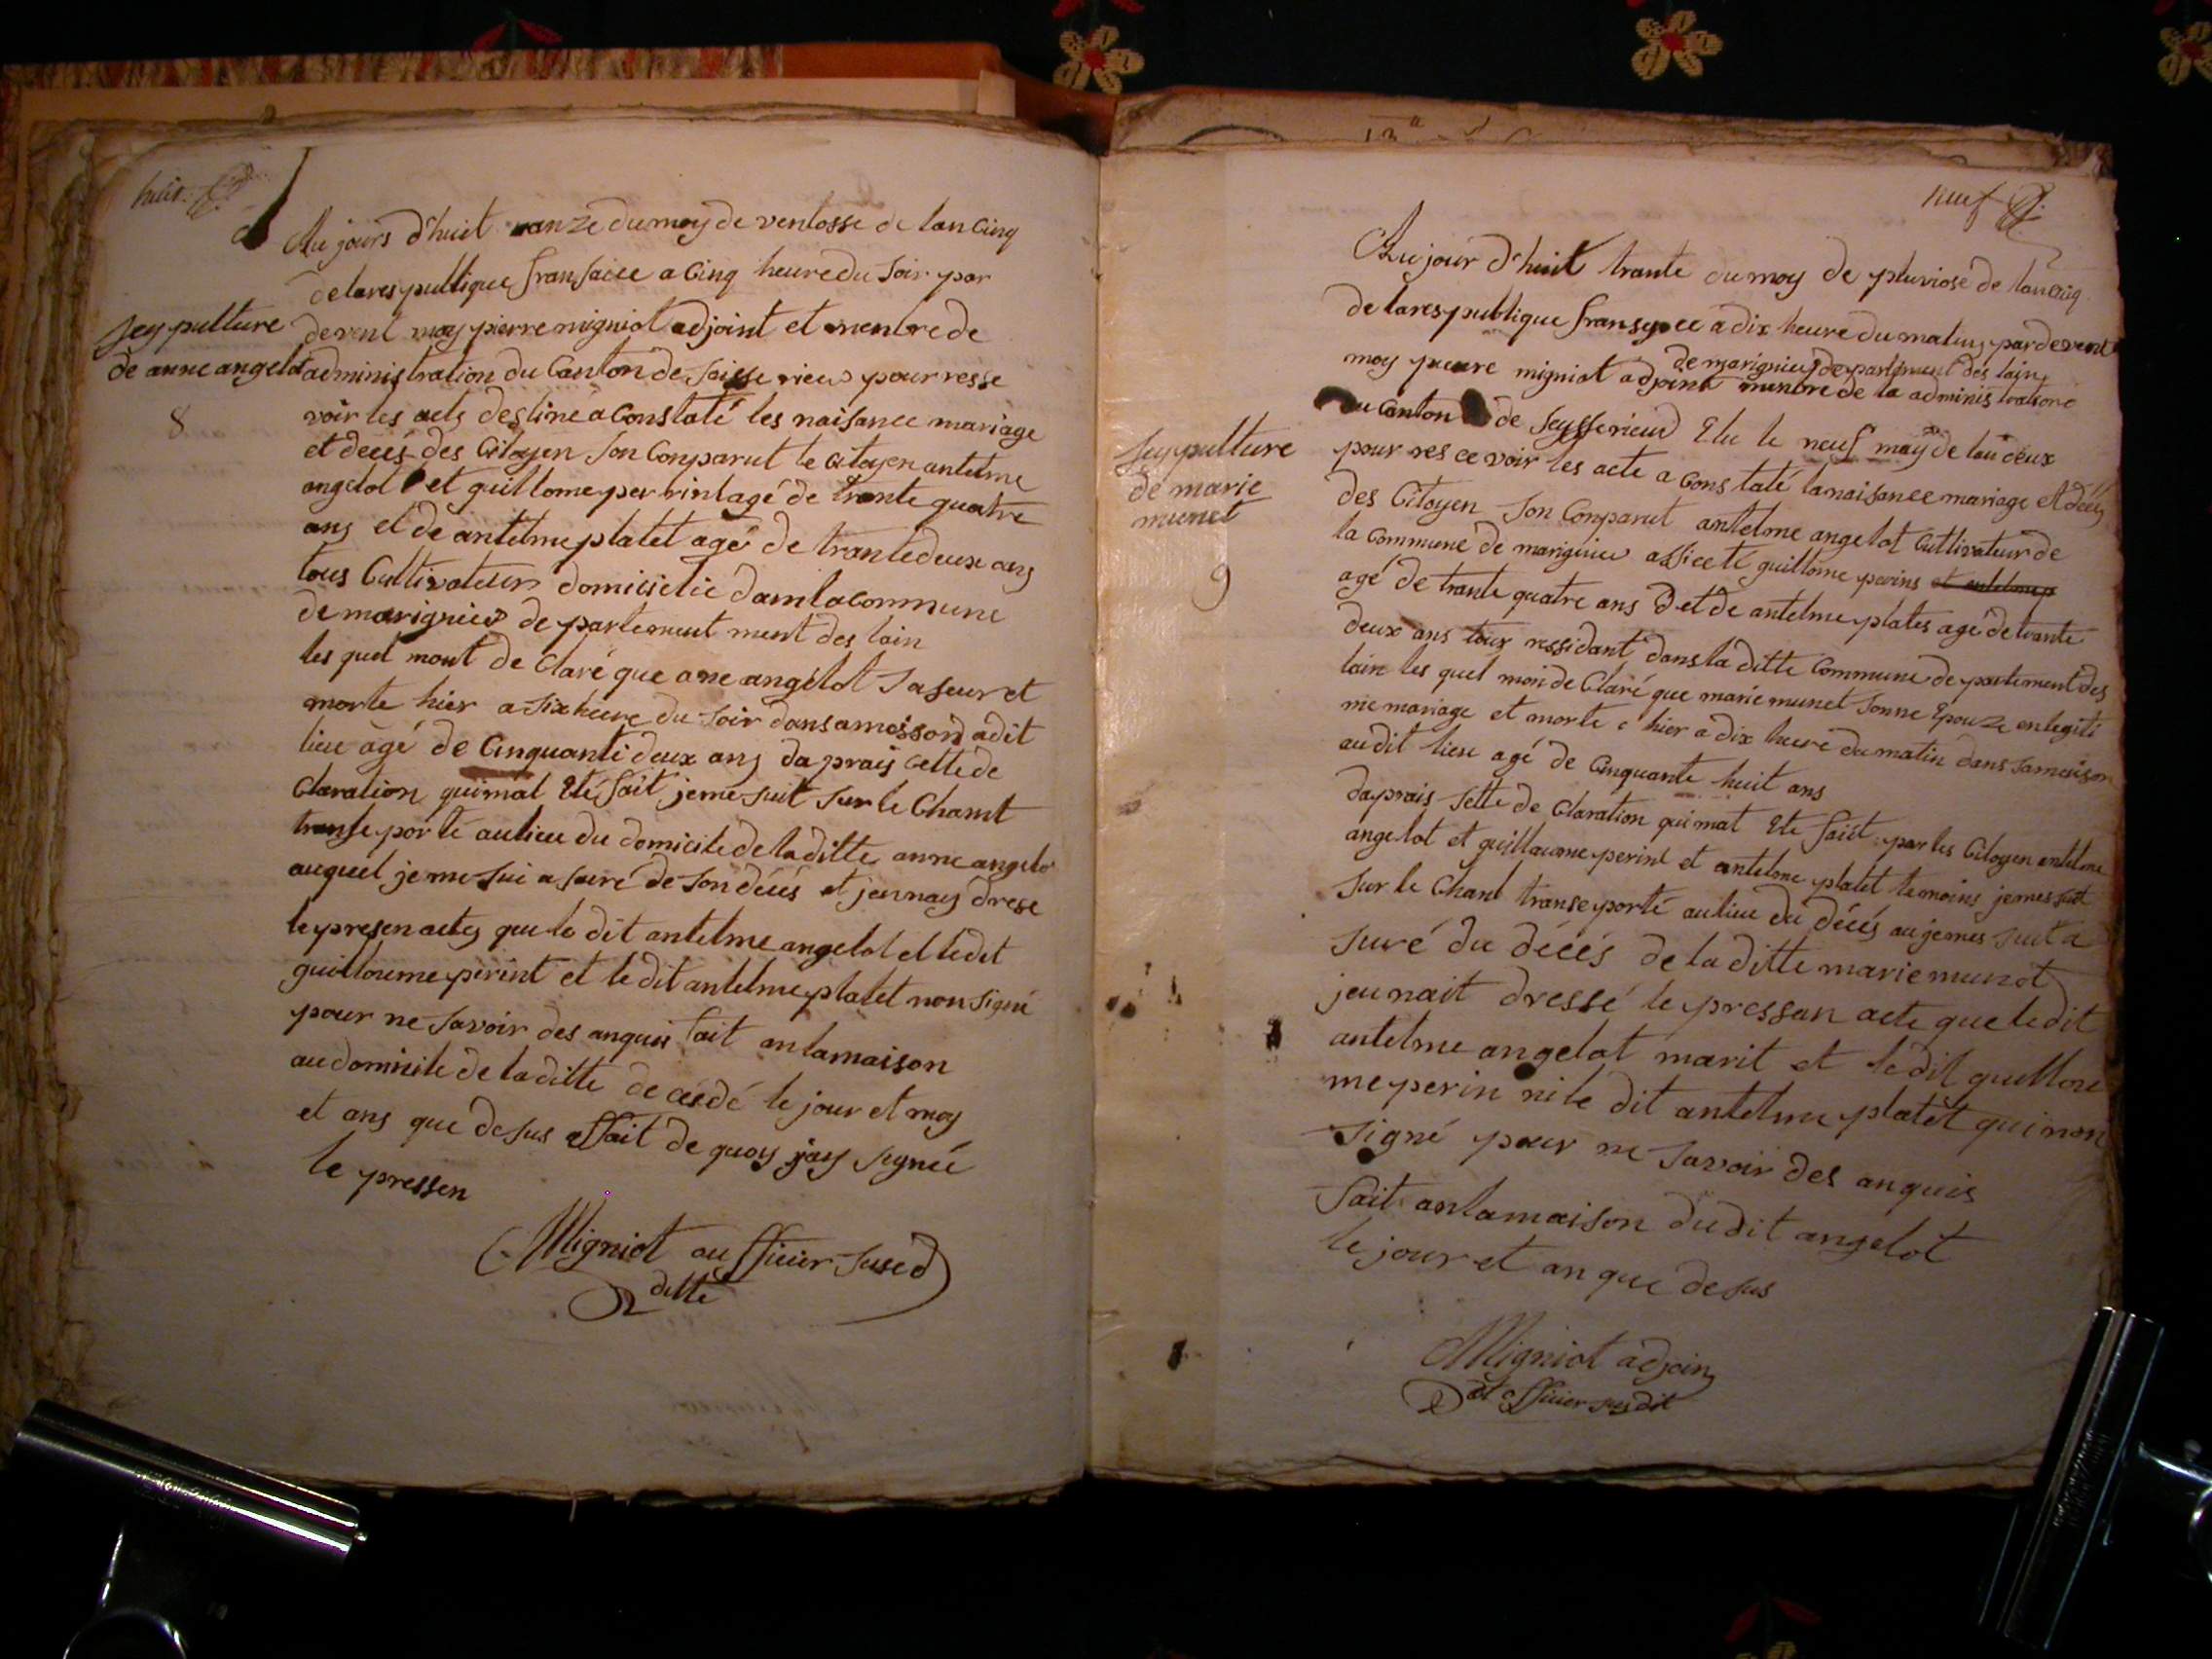 huit
Au jours d'huit onze du moy de ventosse de lan Cinq
de la respullique fransaice a Cinq heure du soir par
devent moy pierre migniot adjoint et menbre de
administration du Canton de Saisserieu pour resse
voir les acts destiné a Constaté les naisance mariage
et decés des Citoyen son Conparut le Citoyen antelme
angelot et guillome perrint agé de trante quatre
ans et de antelme platet agé de trante deux ans
tous Cultivateur domicielie dans la Commune
de marignieu de partement ment des lain
les quel mont de Claré que ane angelot sa seur et
morte hier a six heure du soir dans a moison adit
lieu agé de Cinquante deux ans daprais cette de
Claration quimat Eté fait je me suit sur le Chamt
transe porté au lieu du domicile de la ditte anne angelo
auquel je me sui a suré de son décés et jennay drese
le presen actes que le dit antelme angelot et ledit
guilloume perint et le dit antelme platet non signé
pour ne savoir des anquis fait an la maison
au domicile de la ditte décédé le jour et moy
et ans que desus effait de quoy jay signée
le pressen
Migniot aufficier suse d
ditte
Seypulture
de anne angelot
8
neuf
Au jour d'huit trante du moy de pluviose de lan Cinq
de la respublique fransyoee a dix heure du matin par devent
de marignieu de partement des lain
moy pierre migniot adjoint menbre de la administration
du Canton de Seysserieud Elu le neuf may de lan deux
pour res ce voir les acte a Constaté la naisance mariage et décés
des Citoyen son Conparut antelme angelot Cultivateur de
la Commune de marignieu assiceté guillome perins et antelme p
agé de trante quatre ans et de antelme plates agé de trante
deux ans toux ressidant dans la ditte Commune de partement des
lain les quel mon de Claré que marie munet sonne Epouze en legiti
me mariage et morte hier a dix heure du matin dans sa maison
au dit lieu agé de Cinquante huit ans
daprais sette de Claration quimat Ete faist par les Citoyen antelme
angelot et guillaume perint et antelme platet temoins jemes suit
sur le Chant transe porté au lieu du décés au jemes suit a
suré du décés de la ditte marie munot
jeunait dressé le pressan acte que le dit
antelme angelot marit et le dit guillou
me perin ni le dit antelme platet qui non
signé pour ne savoir des anquis
fait an la maison du dit angelot
le jour et an que desus
Migniot adjoin
et officier susdit
Seypulture
de marie
munet
9